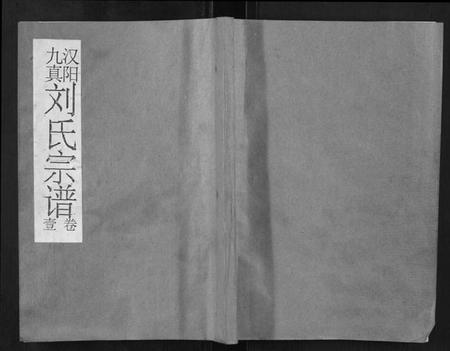 汉阳
九真
刘氏宗谱
卷壹